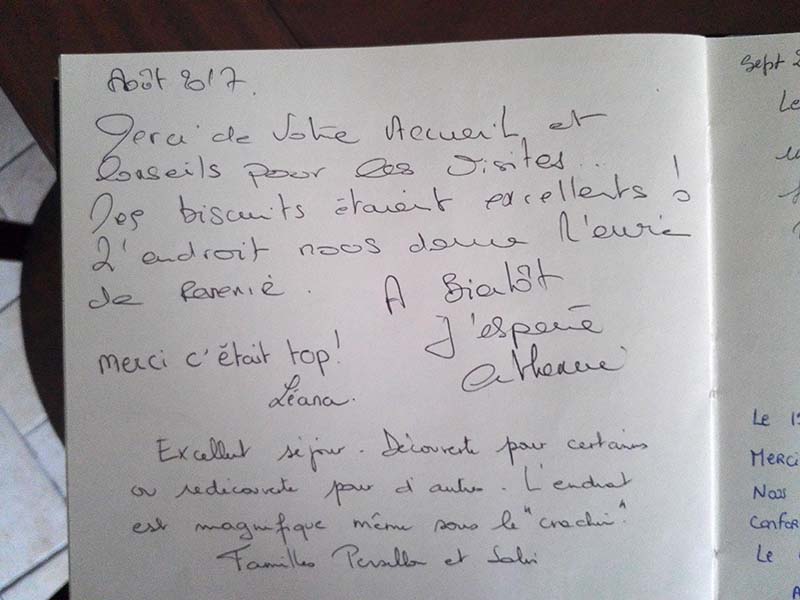 Août 2017.
Merci de Votre Accueil et
Conseils pour les visites...
Les biscuits étaient excellents !
L'endroit nous donne l'envie
de revenir. A Bientôt
J'espère
merci c'était top!
Léana.
Excellent séjour. Découverte pour certains
ou redécouverte pour d'autres. L'endroit
est magnifique même sous le "crachin".
Familles et
Sept 2
Le
Le 1
Merci
Nous
Confor
Le